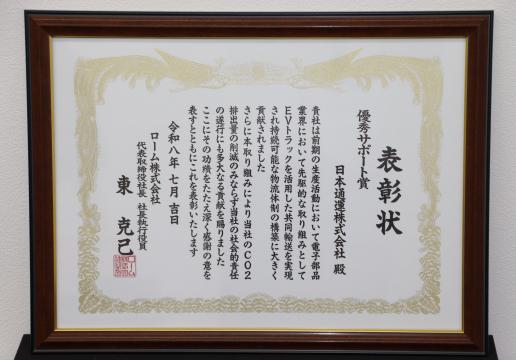 表彰状
優秀サポート賞
日本通運株式会社 殿
貴社は前期の生産活動において電子部品
業界において先駆的な取り組みとして
EVトラックを活用した共同輸送を実現
され持続可能な物流体制の構築に大きく
貢献されました
さらに本取り組みにより当社のCO2
排出量の削減のみならず当社の社会的責任
の遂行にも多大なる貢献を賜りました
ここにその功績をたたえ深く感謝の意を
表すとともにこれを表彰いたします
令和八年七月吉日
ローム株式会社
代表取締役社長 社長執行役員
東 克己